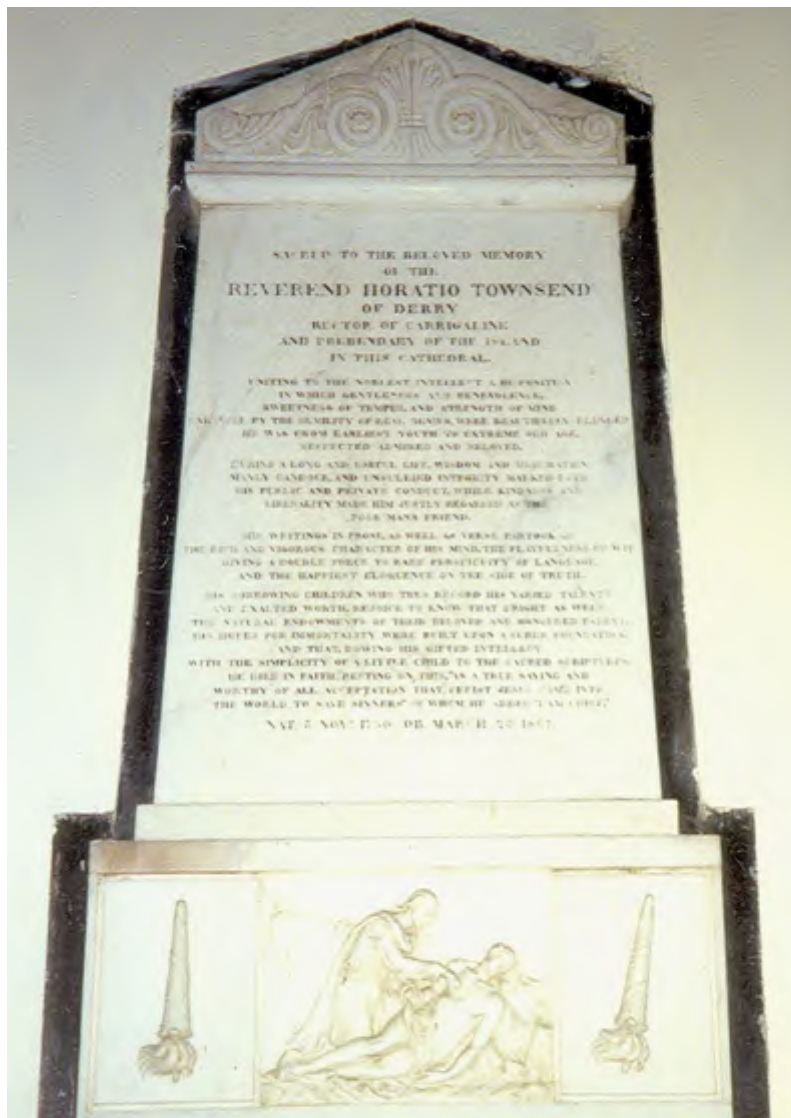 SACRED TO THE BELOVED MEMORY
OF THE
REVEREND HORATIO TOWNSEND
OF DERRY
RECTOR OF CARRIGALINE
AND PREBENDARY OF THE ISLAND
IN THIS CATHEDRAL.
UNITING TO THE NOBLEST INTELLECT A DISPOSITION
IN WHICH GENTLENESS AND BENEVOLENCE,
SWEETNESS OF TEMPER, AND STRENGTH OF MIND
BY THE HUMILITY OF REAL GENIUS, WERE BEAUTIFULLY BLENDED
HE WAS FROM EARLIEST YOUTH TO EXTREME OLD AGE,
RESPECTED ADMIRED AND BELOVED.
DURING A LONG AND USEFUL LIFE, WISDOM AND MODERATION
MANLY CANDOUR, AND UNSULLIED INTEGRITY MARKED BOTH
HIS PUBLIC AND PRIVATE CONDUCT, WHILE KINDNESS AND
LIBERALITY MADE HIM JUSTLY REGARDED AS THE
POOR MANS FRIEND.
HIS WRITINGS IN PROSE, AS WELL AS VERSE PARTOOK OF
THE RICH AND VIGOROUS CHARACTER OF HIS MIND, THE PLAYFULNESS OF WIT
GIVING A DOUBLE FORCE TO RARE PERSPICUITY OF LANGUAGE,
AND THE HAPPIEST ELOQUENCE ON THE SIDE OF TRUTH.
HIS SORROWING CHILDREN WHO THUS RECORD HIS VARIED TALENTS
AND EXALTED WORTH, REJOICE TO KNOW THAT BRIGHT AS WERE
THE NATURAL ENDOWMENTS OF THEIR BELOVED AND HONOURED PARENT,
HIS HOPES FOR IMMORTALITY WERE BUILT UPON A SURER FOUNDATION,
AND THAT, BOWING HIS GIFTED INTELLECT
WITH THE SIMPLICITY OF A LITTLE CHILD TO THE SACRED SCRIPTURES,
HE DIED IN FAITH, RESTING ON THIS, "AS A TRUE SAYING AND
WORTHY OF ALL ACCEPTATION THAT CHRIST JESUS CAME INTO
THE WORLD TO SAVE SINNERS" OF WHOM HE ADDED "I AM CHIEF."
NAT. 5 NOVR OB. MARCH